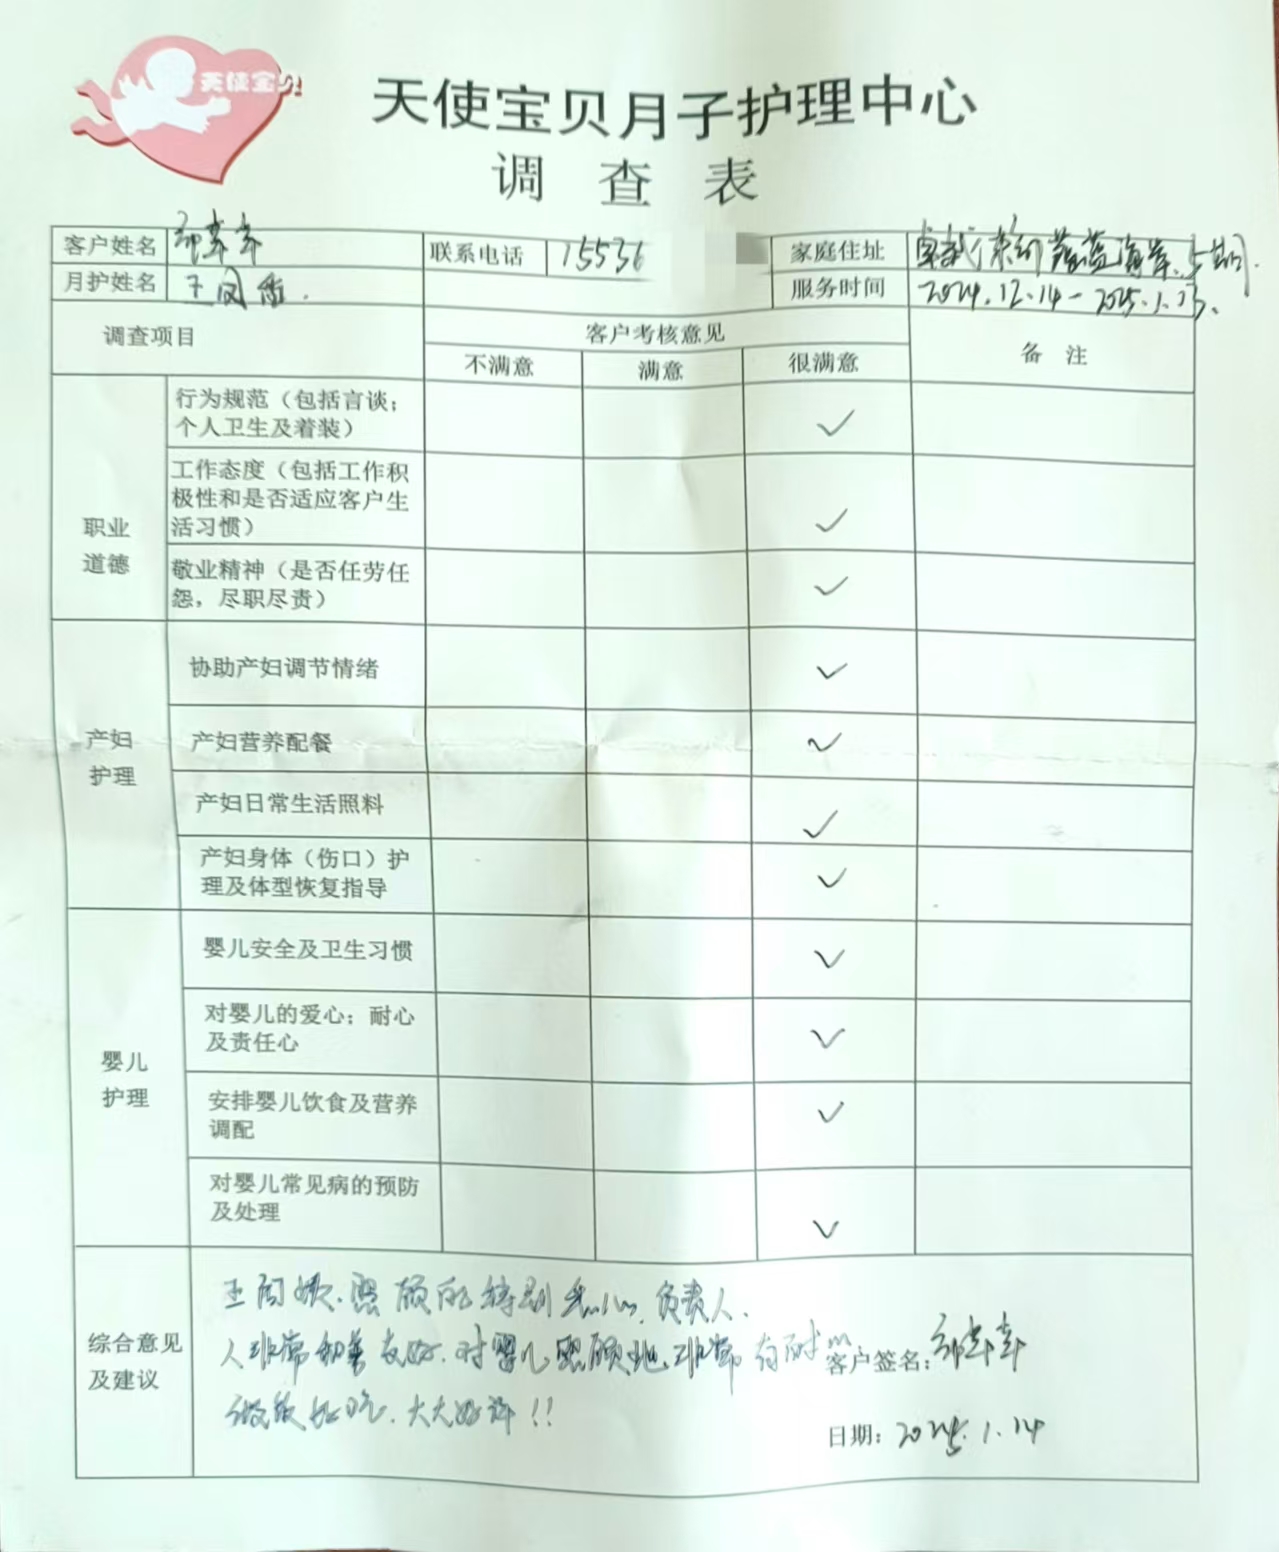 天使宝贝
天使宝贝月子护理中心
调查表
客户姓名
联系电话 15536
家庭住址 蔚蓝海岸、5期
月护姓名 王凤香.
服务时间 2024.12.14-2025.1.13、
调查项目
客户考核意见
备注
不满意 满意 很满意
职业
道德
行为规范（包括言谈；
个人卫生及着装）
✓
工作态度（包括工作积
极性和是否适应客户生
活习惯）
✓
敬业精神（是否任劳任
怨，尽职尽责）
✓
产妇
护理
协助产妇调节情绪
✓
产妇营养配餐
✓
产妇日常生活照料
✓
产妇身体（伤口）护
理及体型恢复指导
✓
婴儿
护理
婴儿安全及卫生习惯
✓
对婴儿的爱心；耐心
及责任心
✓
安排婴儿饮食及营养
调配
✓
对婴儿常见病的预防
及处理
✓
综合意见
及建议
王阿姨.照顾的特别细心.负责人.
人非常和善友好.对婴儿照顾地.非常有耐心
做饭好吃.大大好评!!
客户签名：
日期：2025.1.14